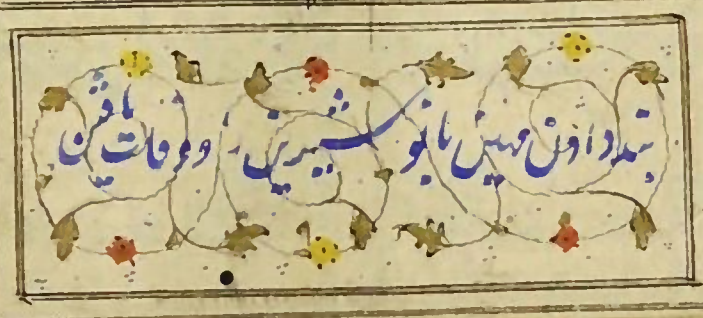 پند دادن مهین بانو شیرین را و وفات یافتن